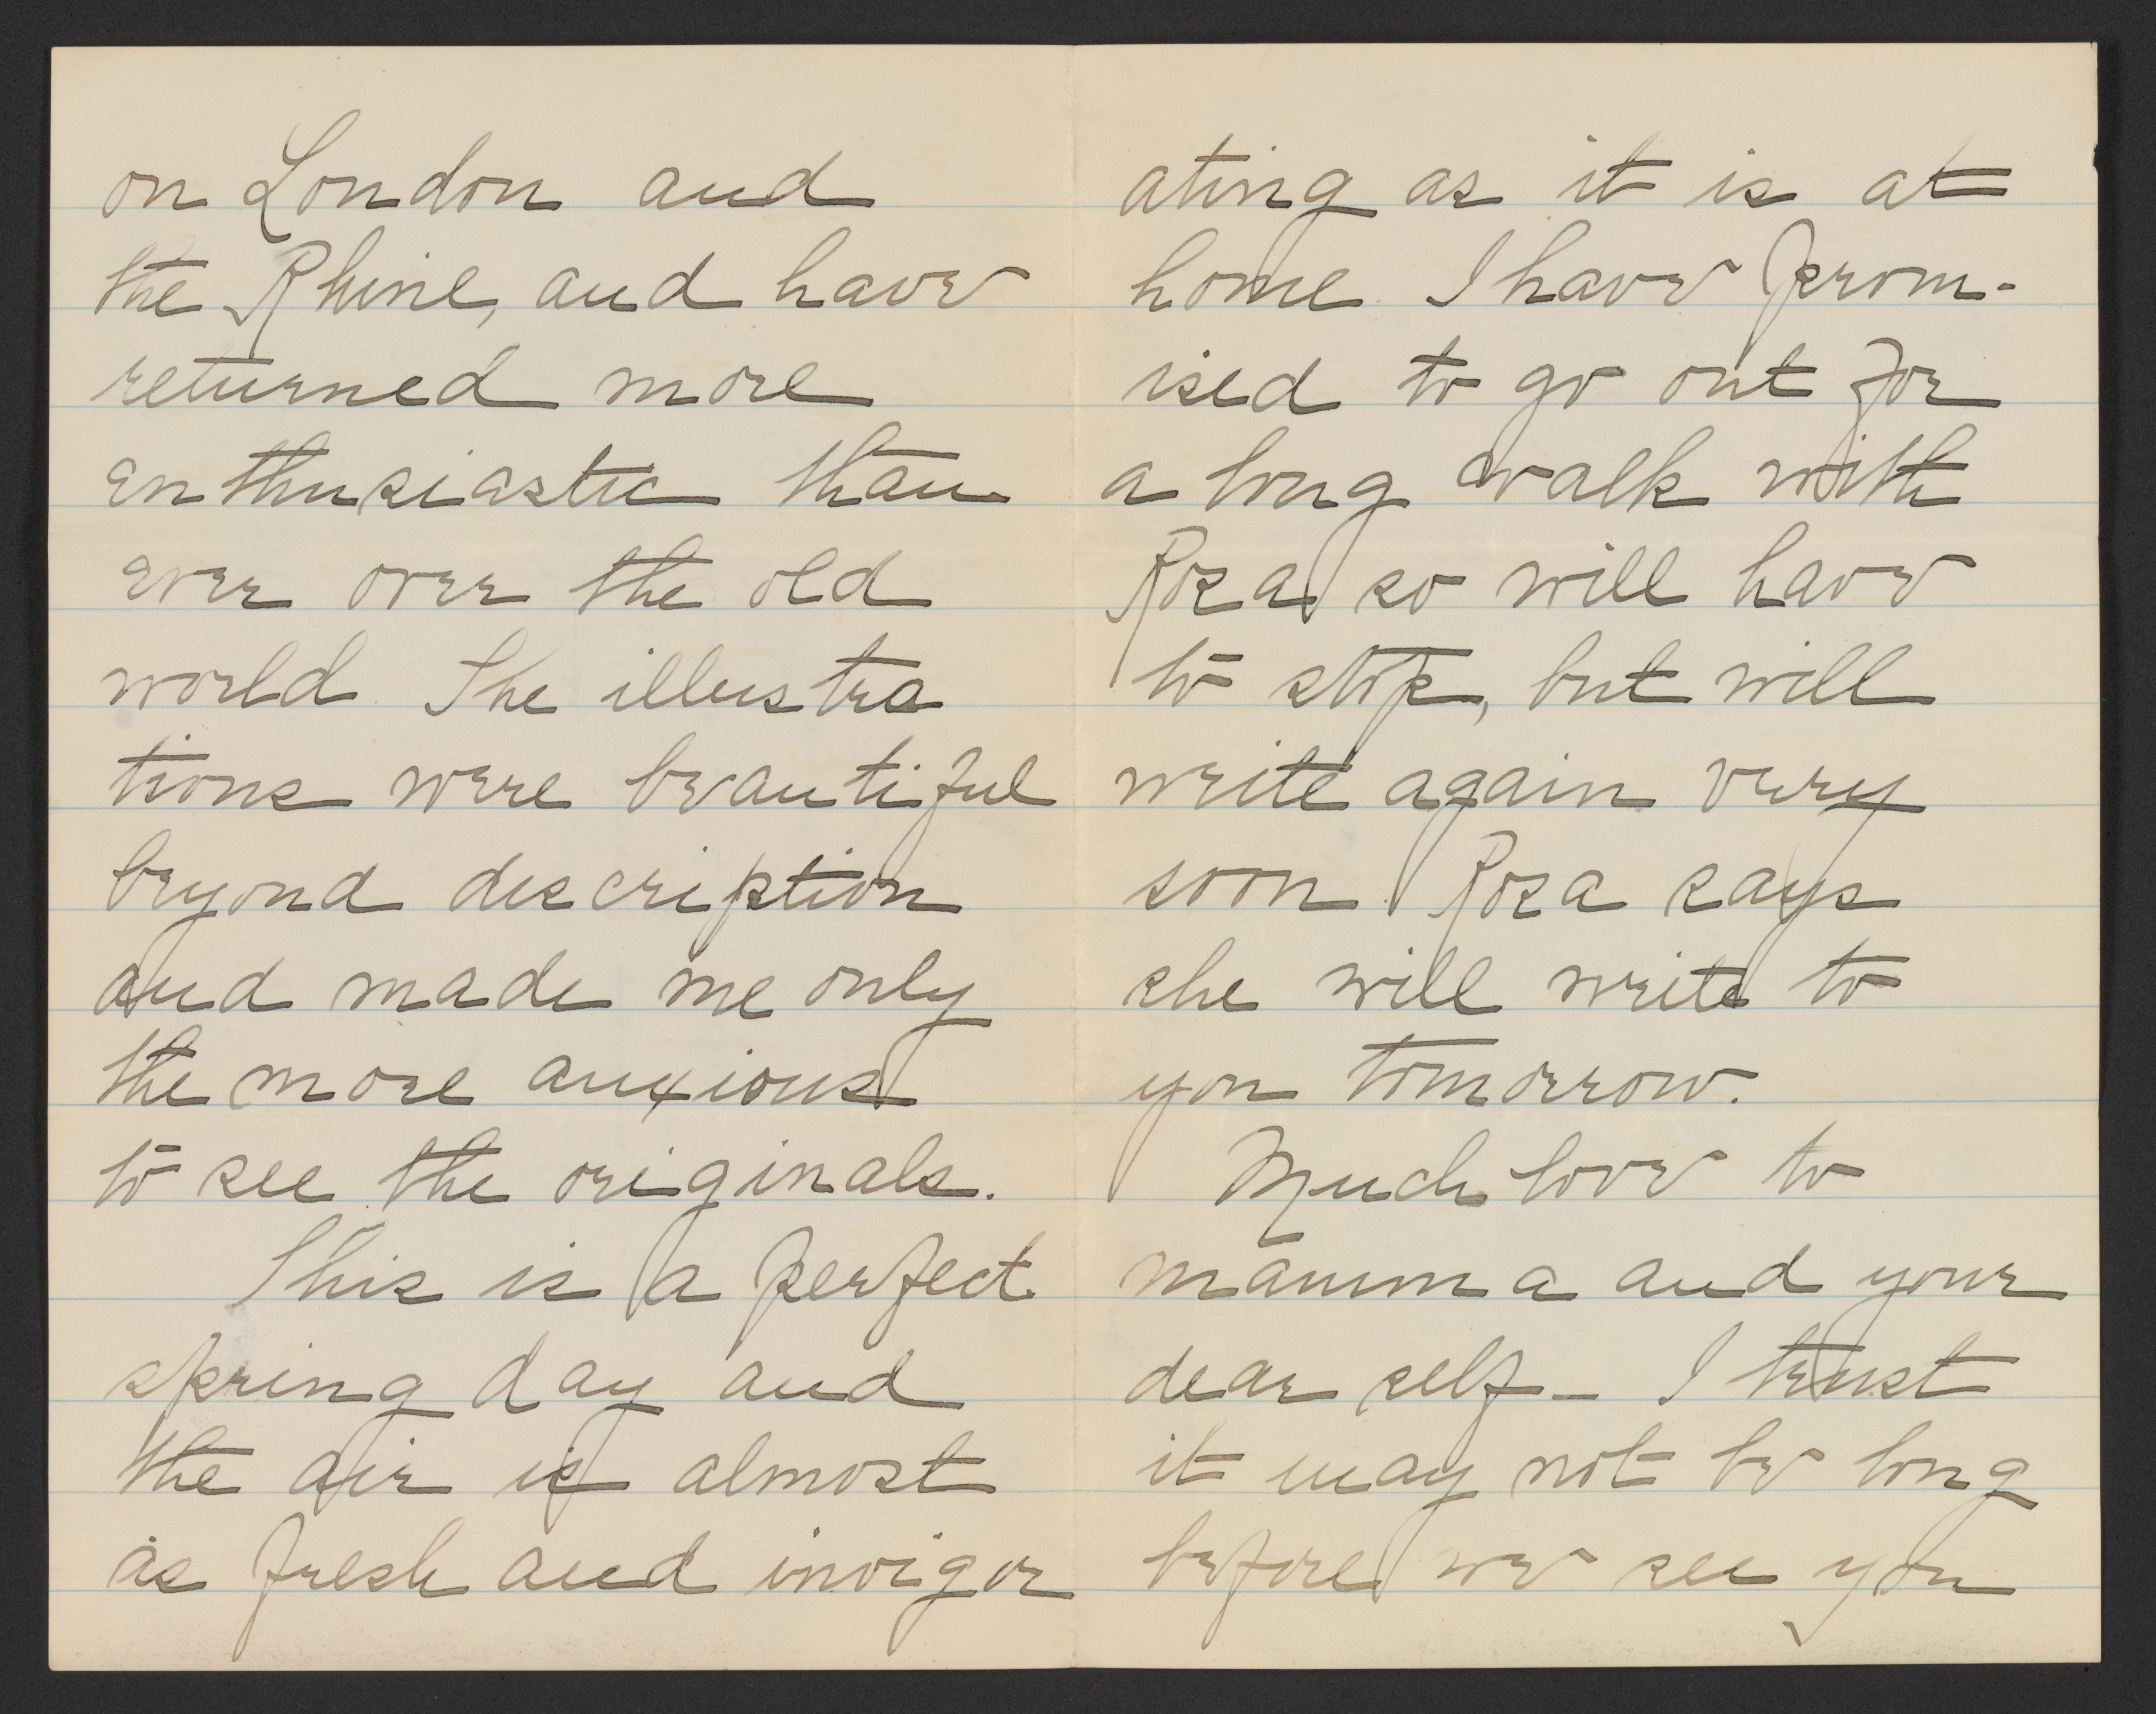 on London and
the Rhine, and have
returned more
enthusiastic than
ever over the old
world. The illustra
tions were beautiful
beyond description
and made me only
the more anxious
to see the originals.
This is a perfect
spring day and
the air is almost
as fresh and invigor
ating as it is at
home. I have prom-
ised to go out for
a long walk with
Rosa so will have
to stop, but will
write again very
soon. Rosa says
she will write to
you tomorrow.
Much love to
mamma and your
dear self - I trust
it may not be long
before we see you